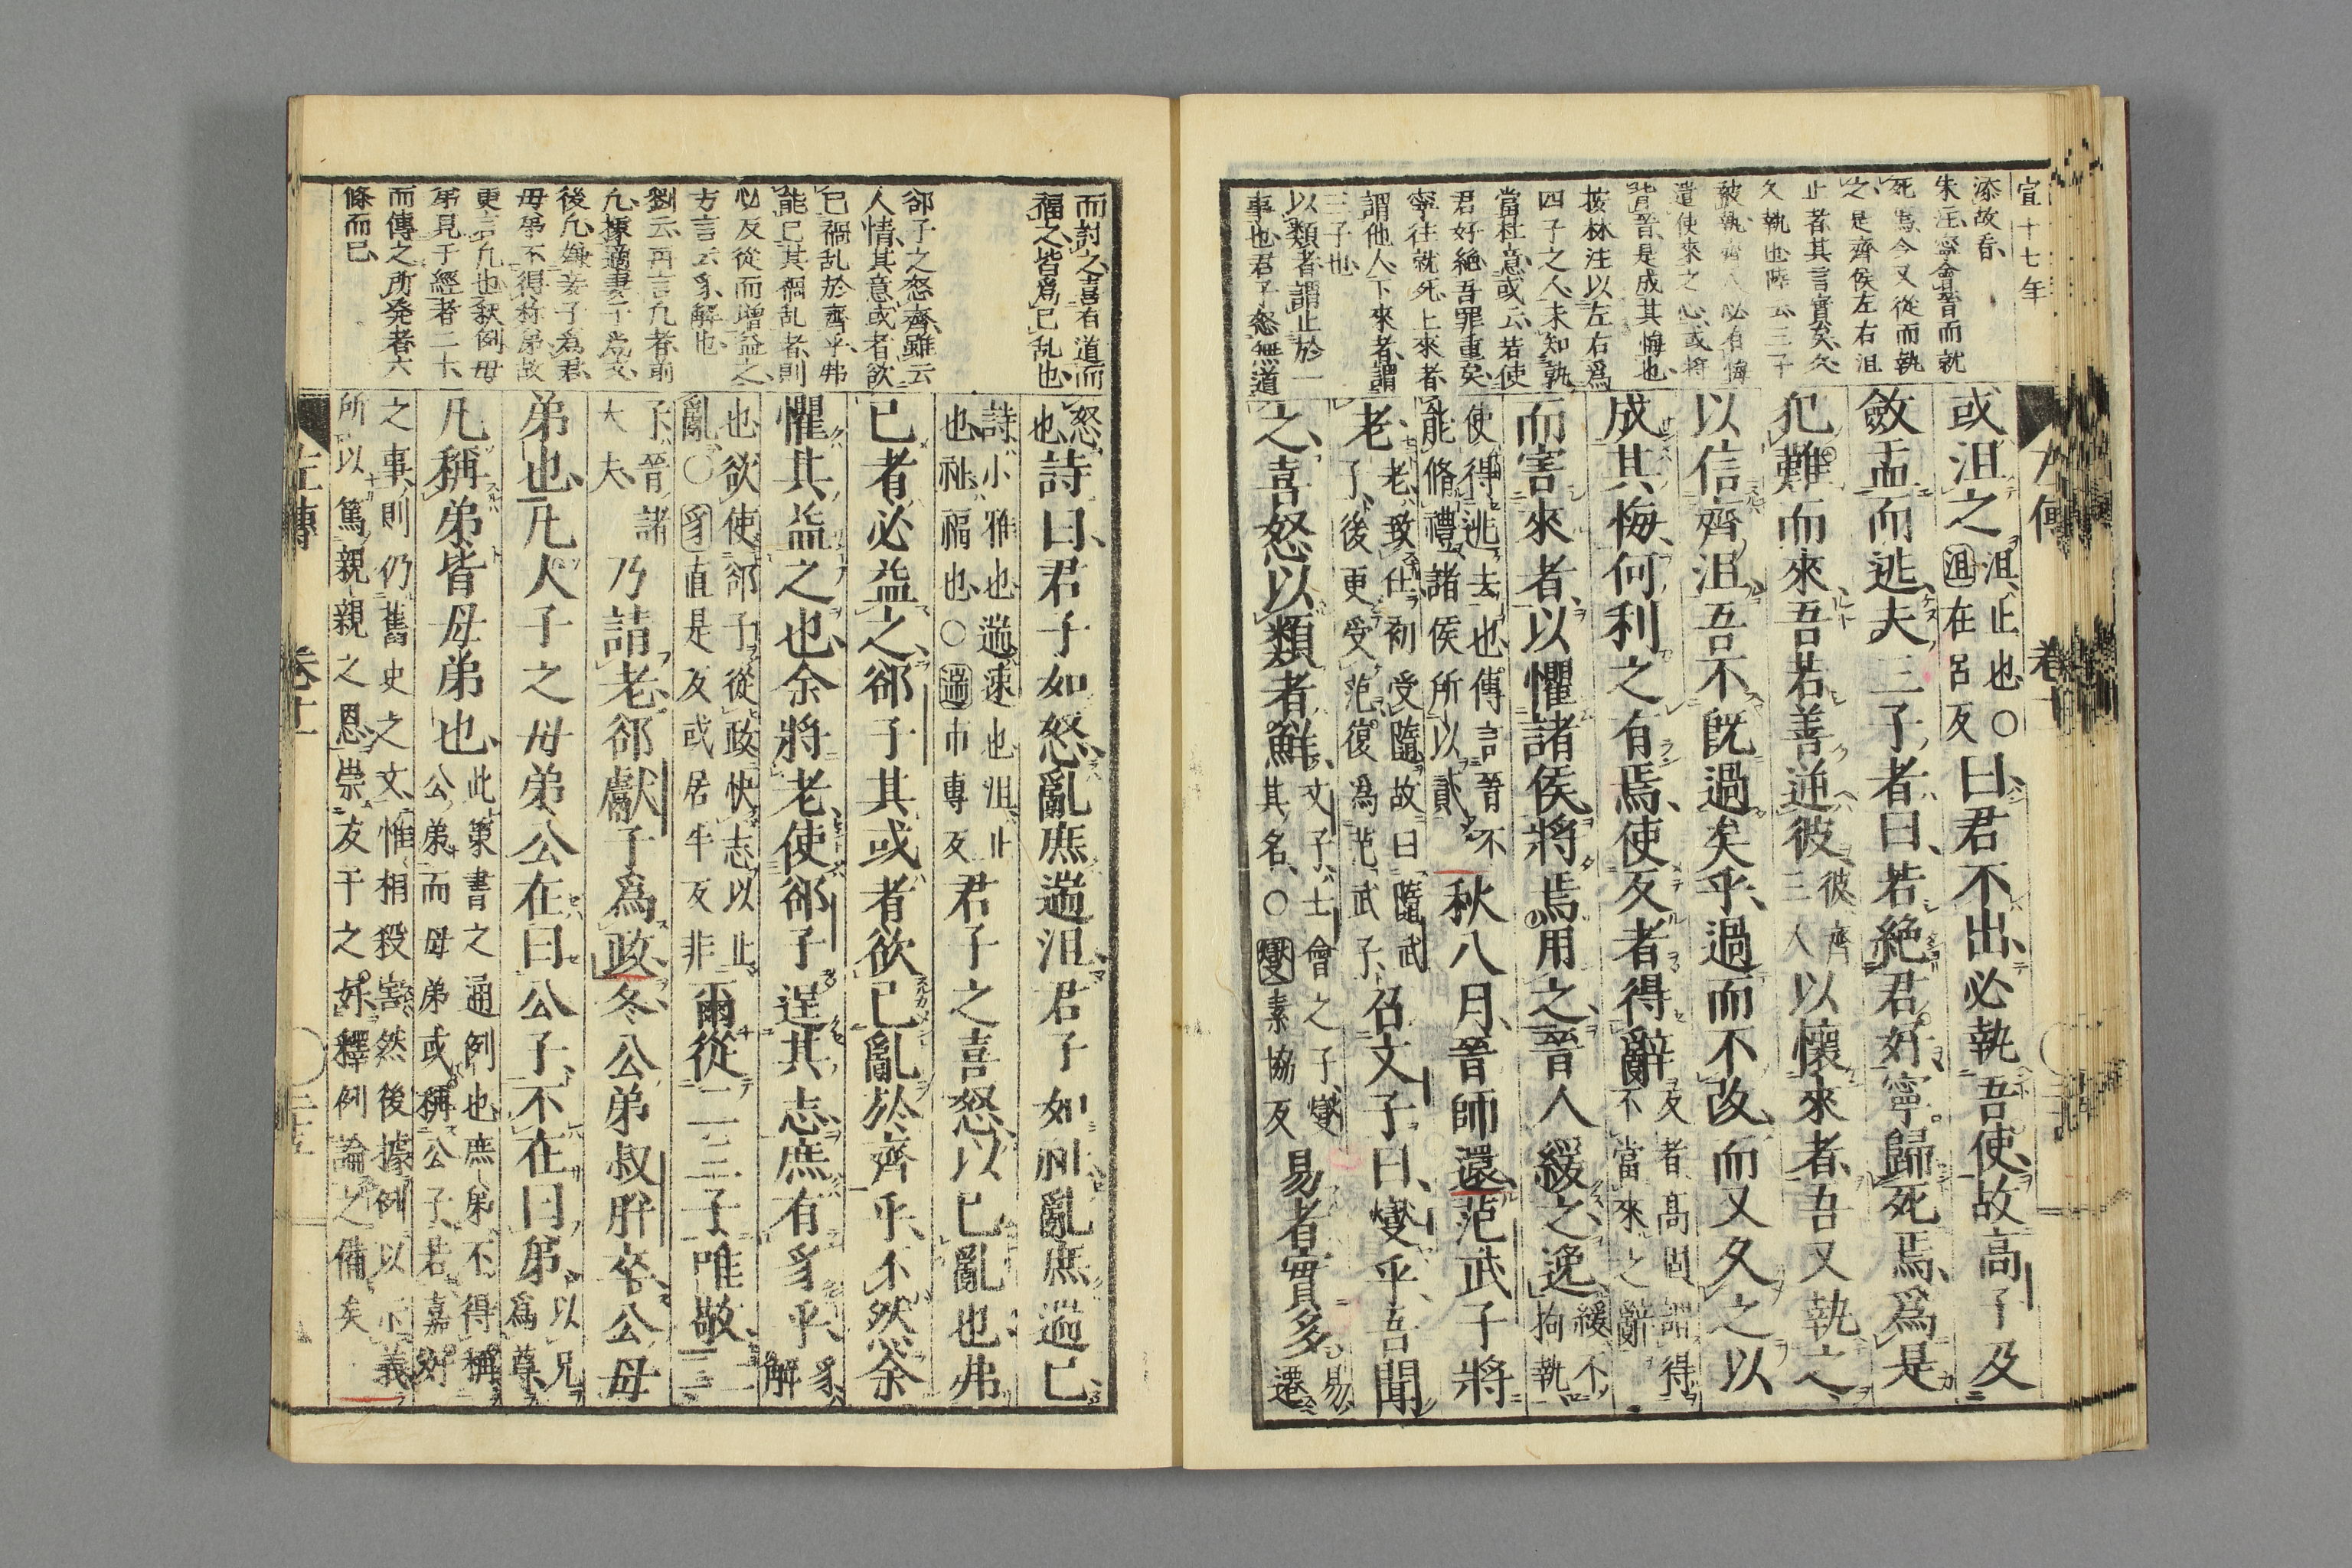 宣十七年
添故看
朱注寧會晉而就
死焉今又從而執
之是齊侯左右沮
止者其言實矣久
久執也陸云三子
被執齊人必有悔
遣使來之心或將
背晉是成其悔也
按林注以左右爲
四子之人未知孰
當杜意或云若使
君好絶吾罪重矣
寧往就死上來者
謂他人下來者謂
三子也
以類者謂止於一
事也君子怒無道
左傳 卷十一
或沮之沮止也○沮在呂反曰君不出必執吾使故高子及
斂盂而逃夫三子者曰若絶君好寧歸死焉爲是
犯難而來吾若善逆彼彼齊三人以懷來者吾又執之
以信齊沮吾不既過矣乎過而不改而又久之以
成其悔何利之有焉使反者得辭反者高固謂得不當來之辭
而害來者以懼諸侯將焉用之晉人緩之逸緩不拘執
使得逃去也傳言晉不能脩禮諸侯所以貳秋八月晉師還范武子將
老老致仕初受隨故曰隨武子後更受范復爲范武子召文子曰燮乎吾聞
之喜怒以類者鮮文子士會之子燮其名○燮素協反易者實多易遷
而討之喜有道而
福之皆爲已乱也
郤子之怒齊雖云
人情其意或者欲
已禍乱於齊乎弗
能已其禍乱者則
必反從而增益之
方言云豸解也
劉云再言凡者前
凡據適妻子爲文
後凡嫌妾子爲君
母弟不得称弟故
更言凡也釈例母
弟見于經者二十
而傳之所発者六
條而已
怒也詩曰君子如怒亂庶遄沮君子如祉亂庶遄已
詩小雅也遄速也沮止也祉福也○遄市專反君子之喜怒以已亂也弗
已者必益之郤子其或者欲已亂於齊乎不然余
懼其益之也余將老使郤子逞其志庶有豸乎豸解
也欲使郤子從政快志以止亂○豸直是反或居牛反非爾從二三子唯敬二三
子晉諸大夫乃請老郤獻子爲政冬公弟叔肸卒公母
弟也凡大子之母弟公在曰公子不在曰弟以兄爲尊
凡稱弟皆母弟也此策書之通例也庶弟不得稱公弟而母弟或稱公子若嘉好
之事則仍舊史之文惟相殺害然後據例以示義所以篤親親之恩崇友于之好釋例論之備矣
左傳 卷十一